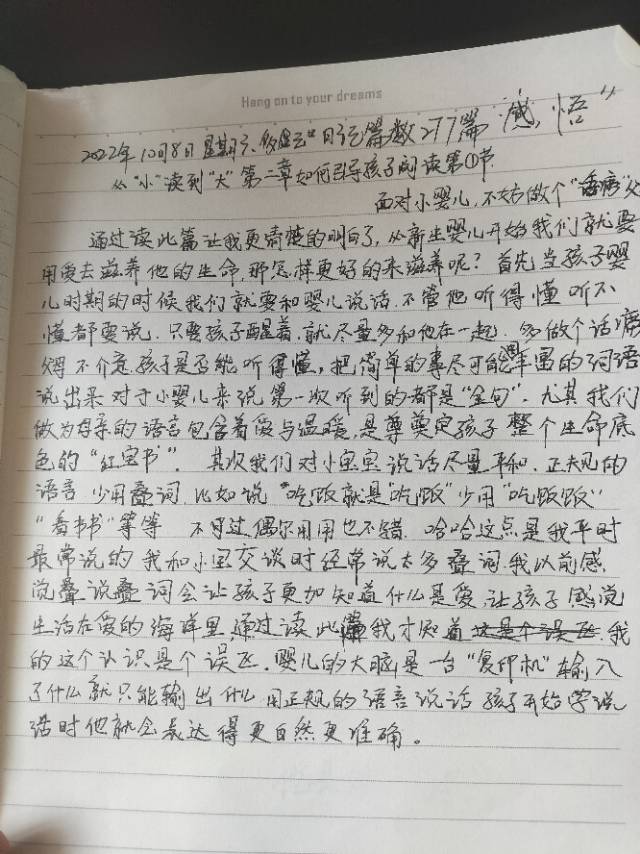 Hang on to your dreams
2022年10月8日 星期六 多云 日记篇数277篇 感悟
从"小"读到"大"第二章如何引导孩子阅读第①节
面对小婴儿,不妨做个"话痨"父
通过读此篇让我更清楚的明白了,从新生婴儿开始我们就要
用爱去滋养他的生命,那怎样更好的来滋养呢?首先当孩子婴
儿时期的时候我们就要和婴儿说话.不管他听得懂听不
懂都要说.只要孩子醒着.就尽量多和他在一起.多做个话痨
不介意孩子是否能听得懂,把简单的事尽可能用丰富的词语
说出来对于小婴儿来说第一次听到的都是"金句".尤其我们
做为母亲的语言包含着爱与温暖,是尊奠定孩子整个生命底
色的"红宝书".其次我们对小宝宝说话尽量平和.正规的
语言少用叠词.比如说"吃饭就是"吃饭"少用"吃饭饭"
"看书书"等等 不过偶尔用用也不错.哈哈这点是我平时
最常说的我和小宝交谈时经常说太多叠词.我以前感
觉叠说叠词会让孩子更加知道什么是爱,让孩子感觉
生活在爱的海洋里通过读此篇我才知道这是个误区.我
的这个认识是个误区.婴儿的大脑是一台"复印机"输入
了什么就只能输出什么 用正规的语言说话孩子开始学说
话时他就会表达得更自然更准确。